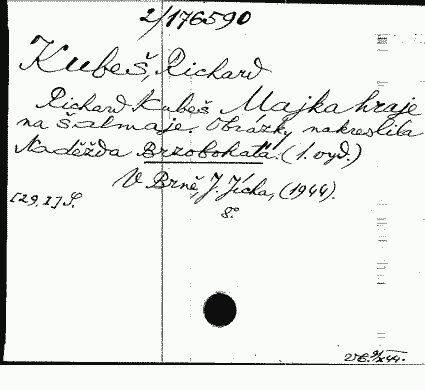 2/176590
Kubeš, Richard
Richard Kubeš Majka hraje
na šalmaje. Obrázky nakreslila
Naděžda Brzobohatá. (1. vyd.)
V Brně, J. Jícha, (1944).
[29, I] S.
8°.